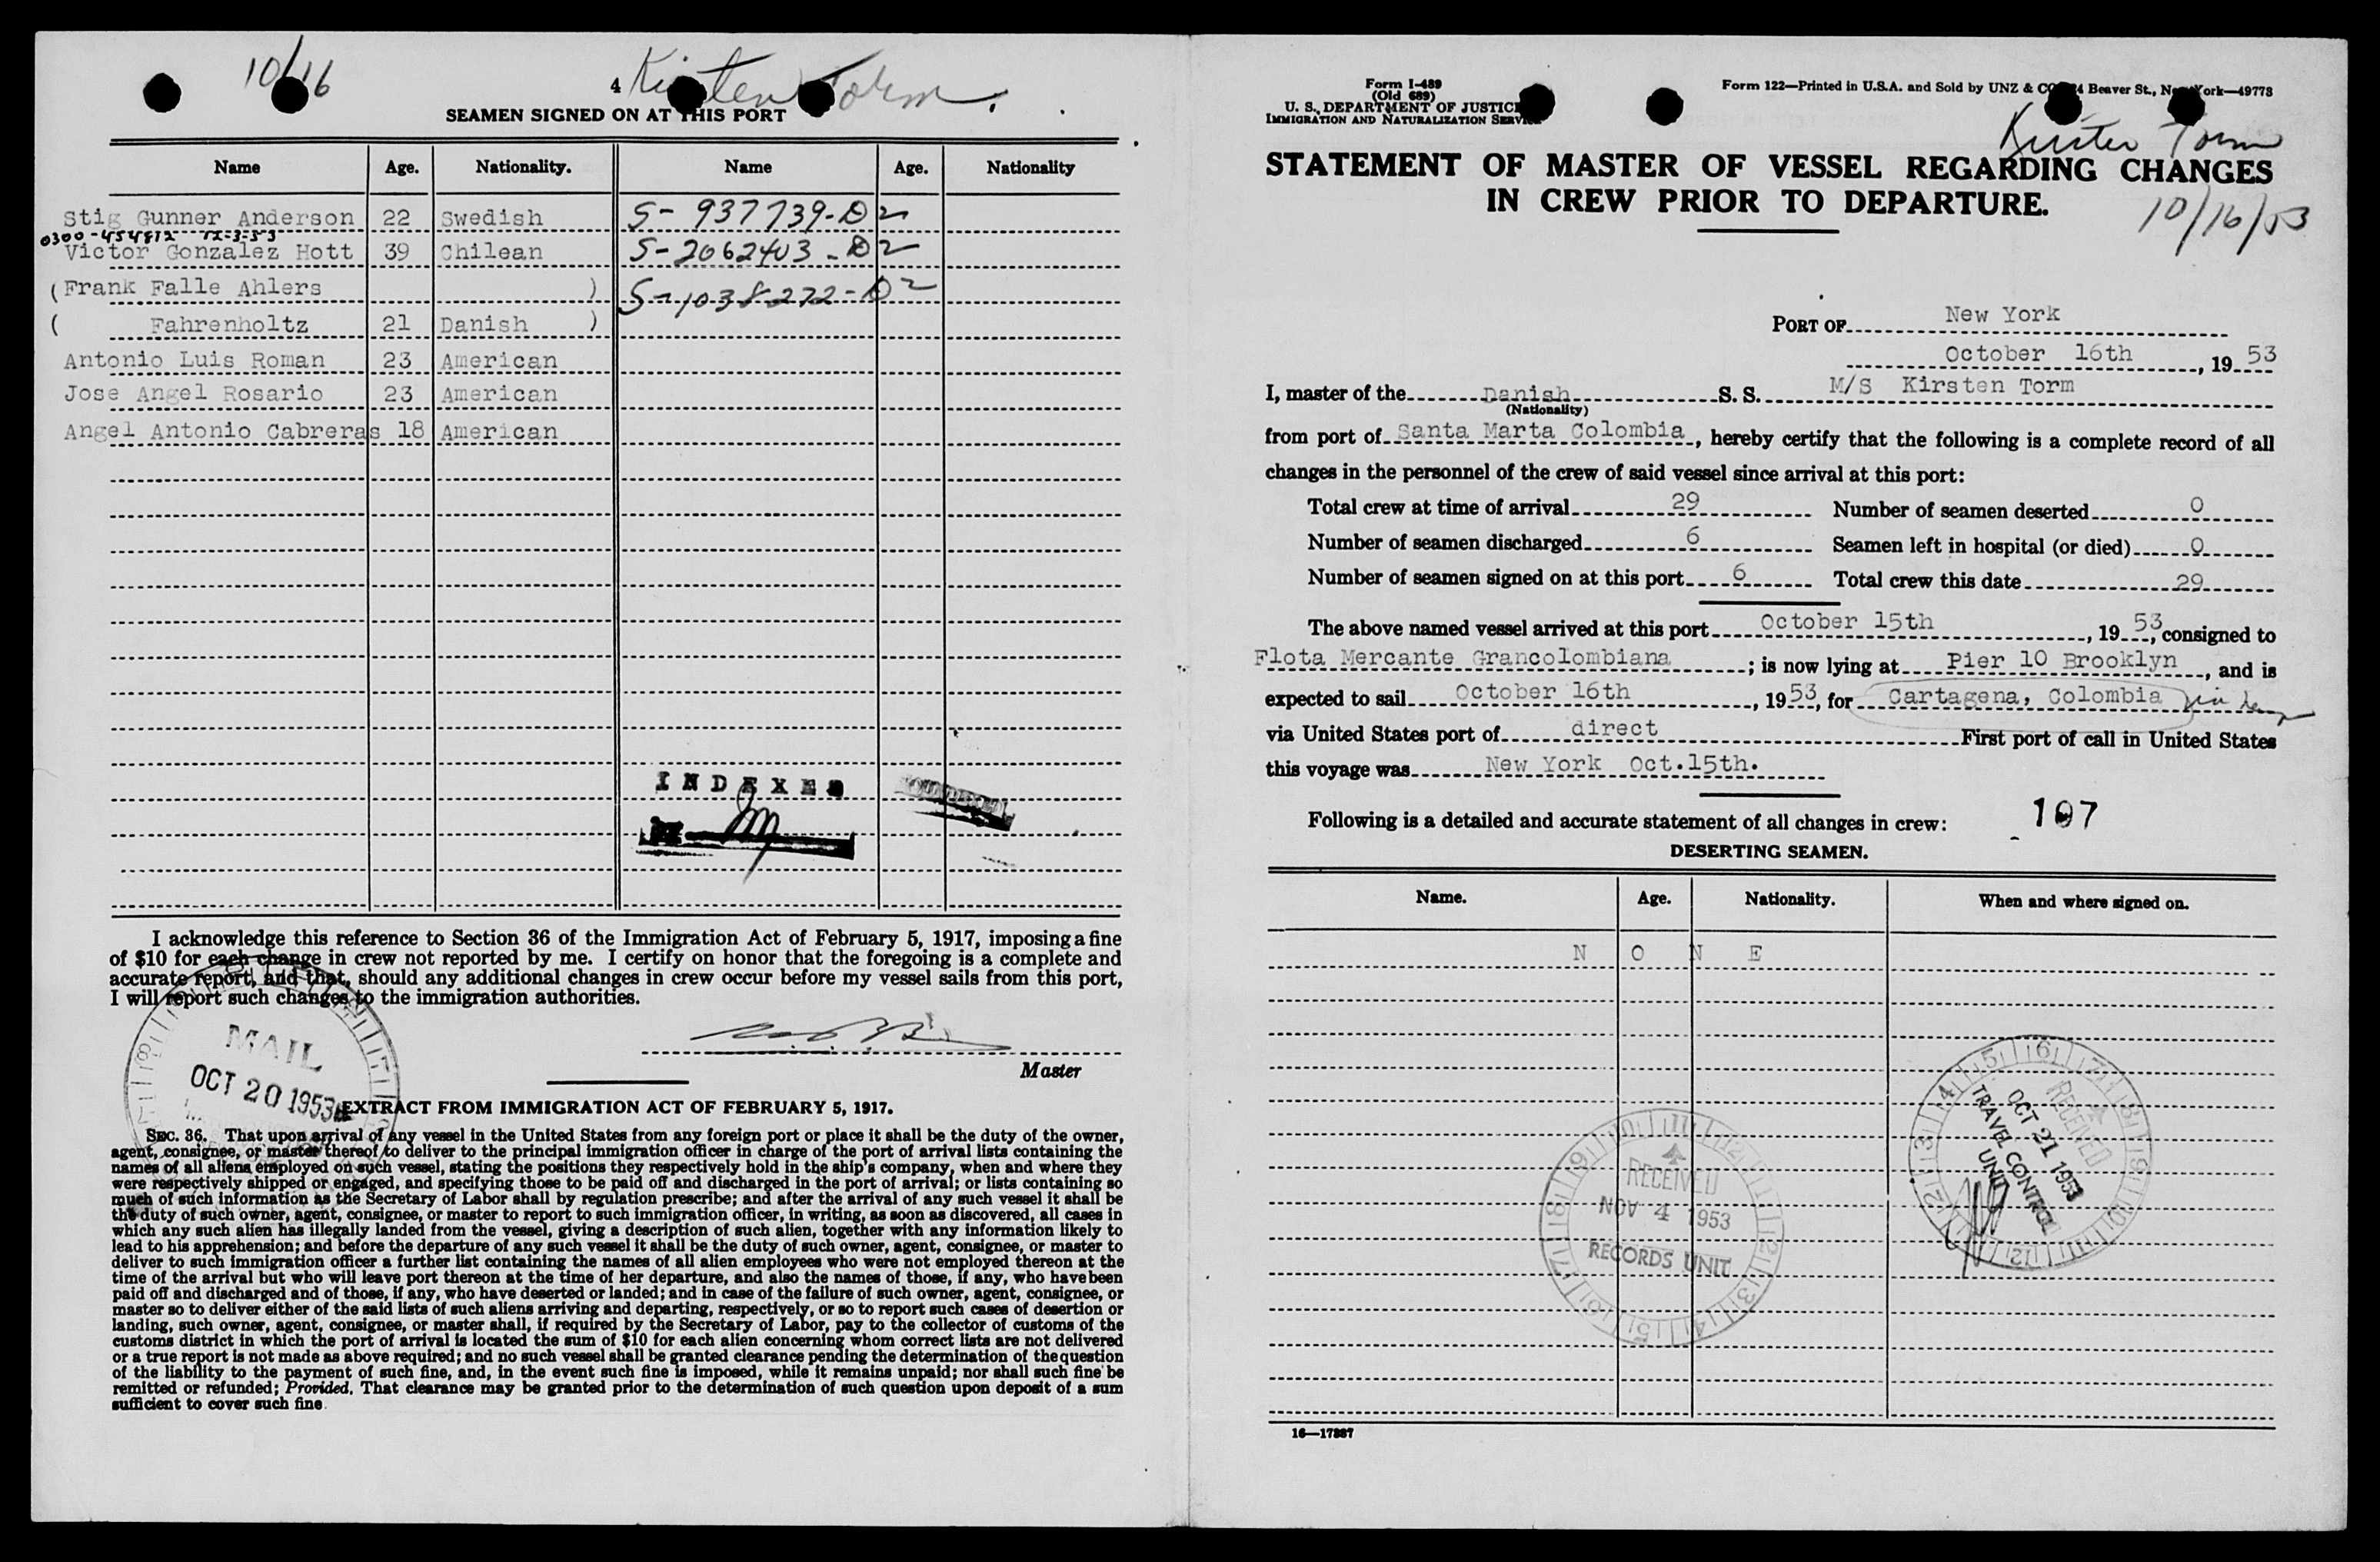 10/16
4 Kirsten Torm.
SEAMEN SIGNED ON AT THIS PORT
Name Age. Nationality. Name Age. Nationality
Stig Gunner Anderson 22 Swedish S-937739-D2
0300-454812 12-3-53
Victor Gonzalez Hott 39 Chilean S-2062403-D2
(Frank Falle Ahlers ) S-1038272-D2
( Fahrenholtz 21 Danish )
Antonio Luis Roman 23 American
Jose Angel Rosario 23 American
Angel Antonio Cabreras 18 American
INDEXED
I acknowledge this reference to Section 36 of the Immigration Act of February 5, 1917, imposing a fine
of $10 for each change in crew not reported by me. I certify on honor that the foregoing is a complete and
accurate report, and that, should any additional changes in crew occur before my vessel sails from this port,
I will report such changes to the immigration authorities.
Master
MAIL
OCT 20 1953
EXTRACT FROM IMMIGRATION ACT OF FEBRUARY 5, 1917.
SEC. 36. That upon arrival of any vessel in the United States from any foreign port or place it shall be the duty of the owner,
agent, consignee, or master thereof to deliver to the principal immigration officer in charge of the port of arrival lists containing the
names of all aliens employed on such vessel, stating the positions they respectively hold in the ship's company, when and where they
were respectively shipped or engaged, and specifying those to be paid off and discharged in the port of arrival; or lists containing so
much of such information as the Secretary of Labor shall by regulation prescribe; and after the arrival of any such vessel it shall be
the duty of such owner, agent, consignee, or master to report to such immigration officer, in writing, as soon as discovered, all cases in
which any such alien has illegally landed from the vessel, giving a description of such alien, together with any information likely to
lead to his apprehension; and before the departure of any such vessel it shall be the duty of such owner, agent, consignee, or master to
deliver to such immigration officer a further list containing the names of all alien employees who were not employed thereon at the
time of the arrival but who will leave port thereon at the time of her departure, and also the names of those, if any, who have been
paid off and discharged and of those, if any, who have deserted or landed; and in case of the failure of such owner, agent, consignee, or
master so to deliver either of the said lists of such aliens arriving and departing, respectively, or so to report such cases of desertion or
landing, such owner, agent, consignee, or master shall, if required by the Secretary of Labor, pay to the collector of customs of the
customs district in which the port of arrival is located the sum of $10 for each alien concerning whom correct lists are not delivered
or a true report is not made as above required; and no such vessel shall be granted clearance pending the determination of the question
of the liability to the payment of such fine, and, in the event such fine is imposed, while it remains unpaid; nor shall such fine be
remitted or refunded; Provided, That clearance may be granted prior to the determination of such question upon deposit of a sum
sufficient to cover such fine.
Form I-489
(Old 689)
U. S. DEPARTMENT OF JUSTICE
IMMIGRATION AND NATURALIZATION SERVICE
Form 122—Printed in U.S.A. and Sold by UNZ & CO. 24 Beaver St., New York—49773
Kirsten Torm
STATEMENT OF MASTER OF VESSEL REGARDING CHANGES
IN CREW PRIOR TO DEPARTURE.
10/16/53
PORT OF New York
October 16th, 1953
I, master of the Danish S. S. M/S Kirsten Torm
(Nationality)
from port of Santa Marta Colombia, hereby certify that the following is a complete record of all
changes in the personnel of the crew of said vessel since arrival at this port:
Total crew at time of arrival 29 Number of seamen deserted 0
Number of seamen discharged 6 Seamen left in hospital (or died) 0
Number of seamen signed on at this port 6 Total crew this date 29
The above named vessel arrived at this port October 15th, 1953, consigned to
Flota Mercante Grancolombiana; is now lying at Pier 10 Brooklyn, and is
expected to sail October 16th, 1953, for Cartagena, Colombia via
via United States port of direct First port of call in United States
this voyage was New York Oct.15th.
Following is a detailed and accurate statement of all changes in crew: 107
DESERTING SEAMEN.
Name. Age. Nationality. When and where signed on.
N O N E
RECEIVED
OCT 21 1953
TRAVEL CONTROL
UNIT
RECEIVED
NOV 4 1953
RECORDS UNIT
16—17887